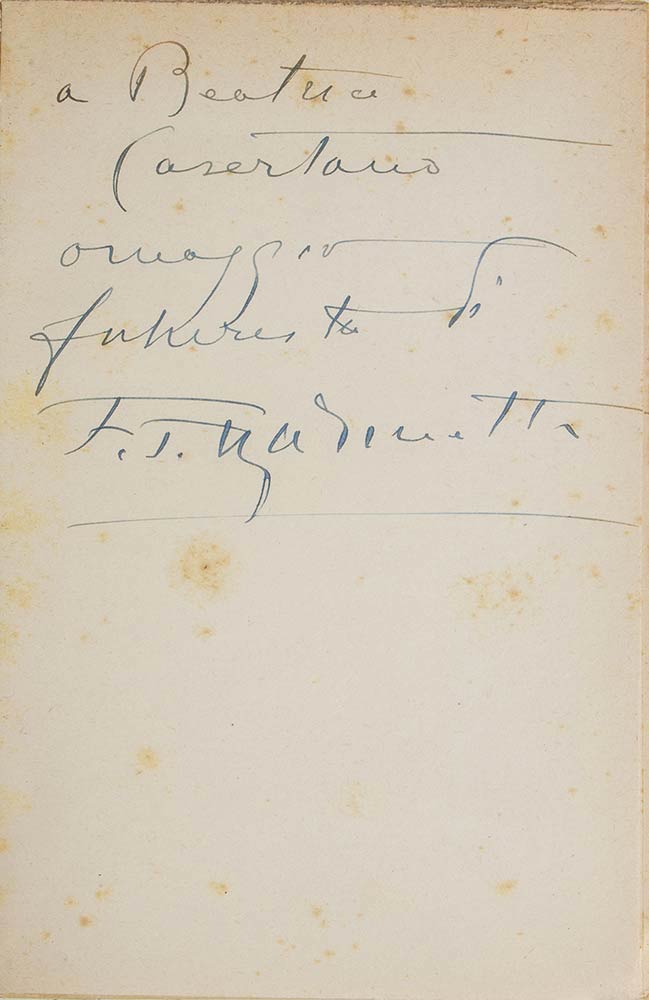 a Beatrice
Casertano
omaggio
futurista di
F. T. Marinetti